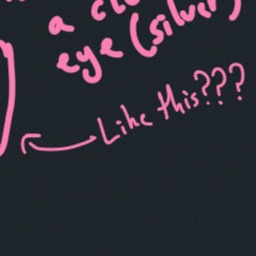 a
eye (silver)
Like this???